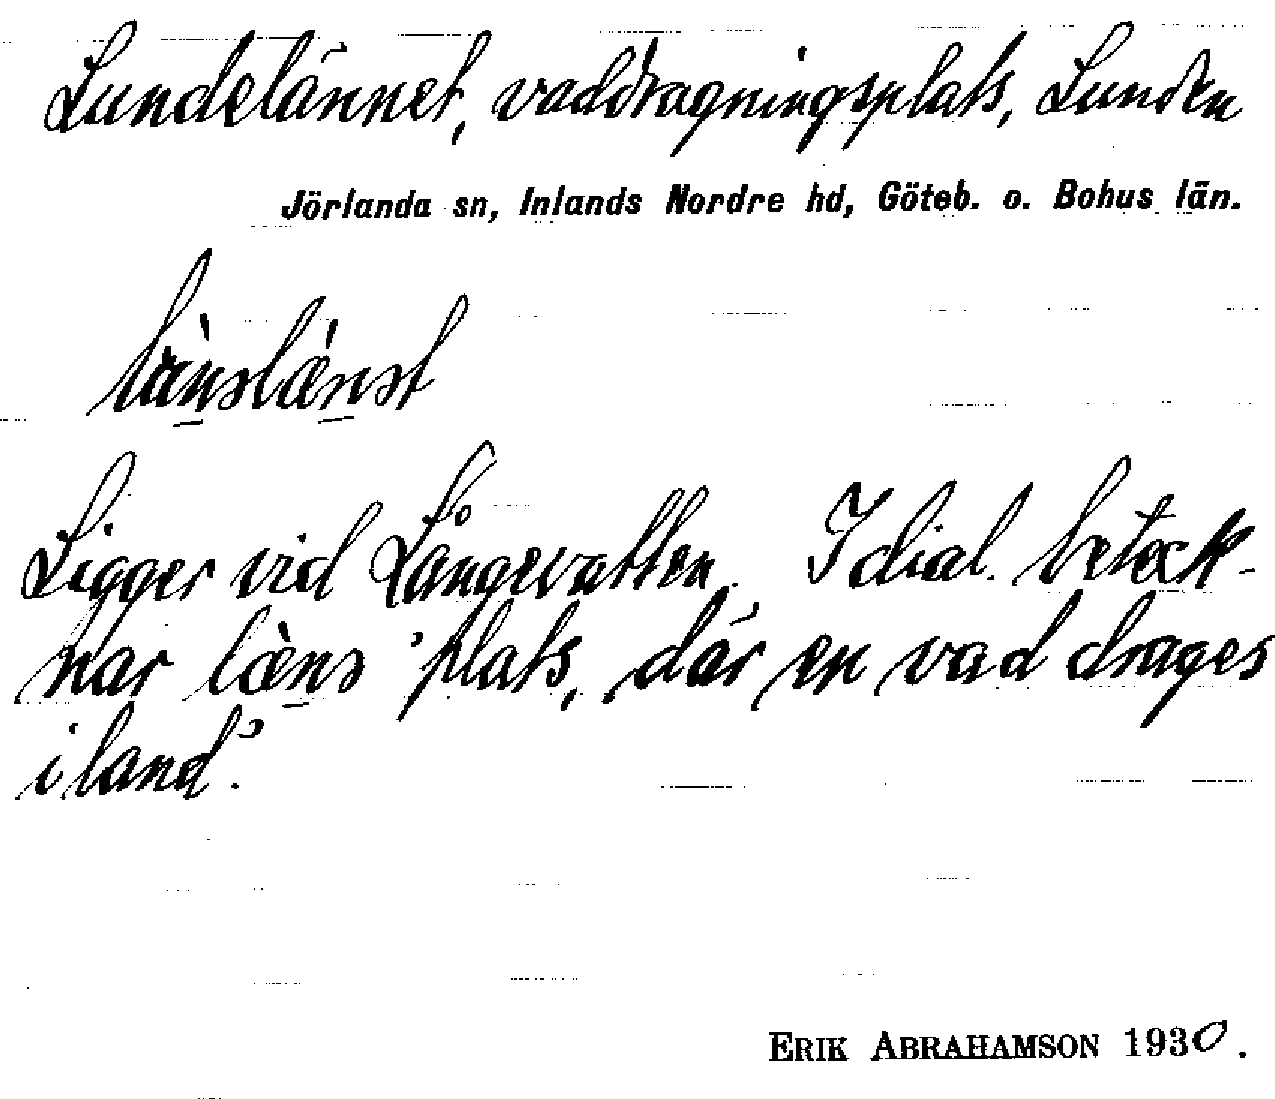 Lundelännet, vaddragningsplats, Lunden
Jörlanda sn, Inlands Nordre hd, Göteb. o. Bohus län.
Ligger vid Långevatten. I dial. beteck-
nar læns 'plats, där en vad drages
i land'.
ERIK ABRAHAMSON 1930.